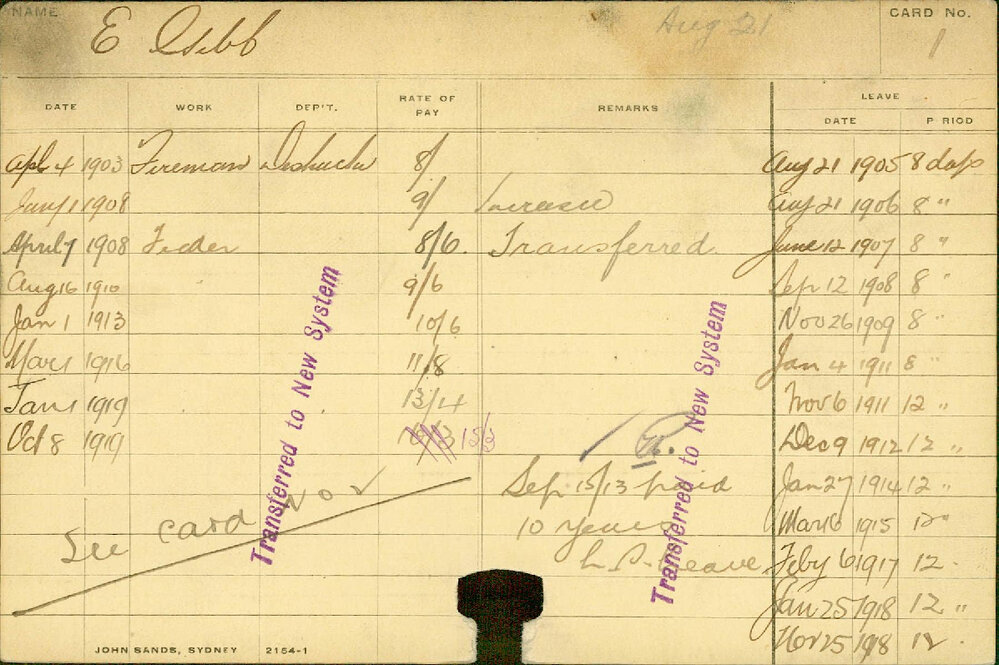 NAME E Gibb Aug 21 CARD No. 1
DATE WORK DEP'T. RATE OF PAY REMARKS LEAVE
DATE P RIOD
Apl 4 1903 Fireman 8/ Aug 21 1905 8 days
Jany 1 1908 9/ Increase Aug 21 1906 8 "
April 7 1908 8/6 Transferred June 12 1907 8 "
Aug 16 1910 9/6 Sep 12 1908 8 "
Jan 1 1913 10/6 Nov 26 1909 8 "
Mar 1 1916 11/8 Jan 4 1911 8 "
Jan 1 1919 13/4 Nov 6 1911 12 "
Oct 8 1919 15/3 Dec 9 1912 12 "
Sep 15/13 paid Jan 27 1914 12 "
See card No 2 10 Years Mar 6 1915 12 "
L. S. Leave Feby 6 1917 12 "
Jan 25 1918 12 "
Nov 25 1918 12
Transferred to New System
Transferred to New System
JOHN SANDS, SYDNEY 2154-1